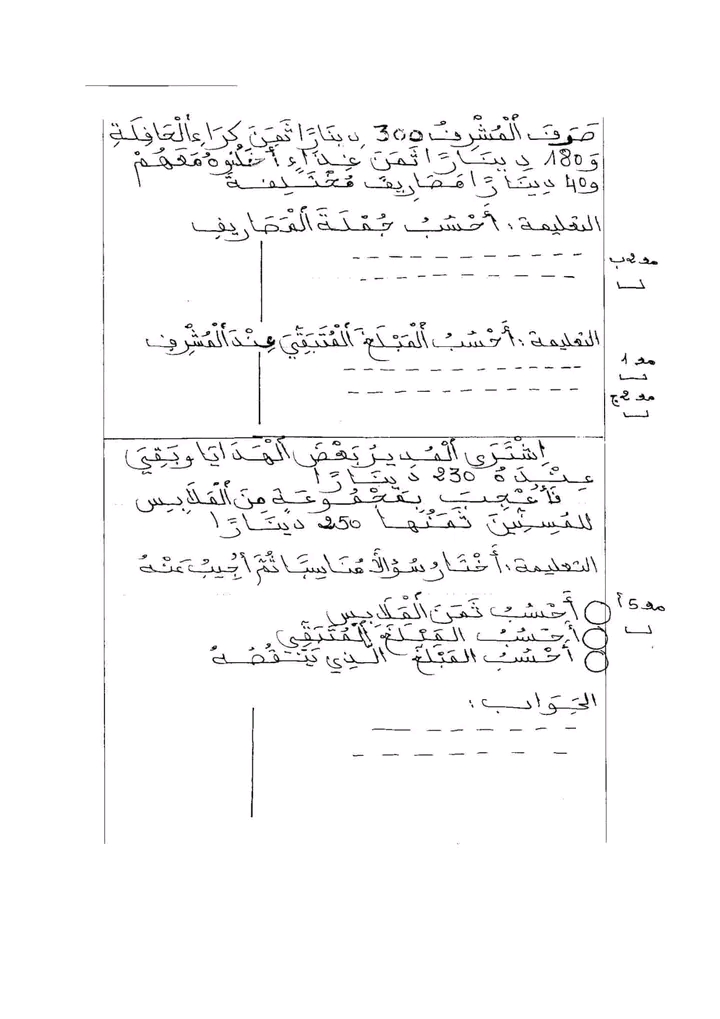 صَرَفَ الْمُشْرِفُ 300 دِينَارًا ثَمَنَ كِرَاءِ الْحَافِلَةِ
وَ 180 دِينَارًا ثَمَنَ غِذَاءٍ أَخَذُوهُ مَعَهُمْ
و 40 دِينَارًا مَصَارِيفَ مُخْتَلِفَةً
التعليمة : أَحْسُبُ جُمْلَةَ الْمَصَارِيفِ
مع 2 ب
التعليمة : أَحْسُبُ الْمَبْلَغَ الْمُتَبَقِّيَ عِنْدَ الْمُشْرِفِ
مع 1
مع 2 ج
اِشْتَرَى الْمُدِيرُ بَعْضَ الْهَدَايَا وَبَقِيَ
عِنْدَهُ 230 دِينَارًا
فَأُعْجِبَ بِمَجْمُوعَةٍ مِنَ الْمَلَابِسِ
لِلْمُسِنِّينَ ثَمَنُهَا 250 دِينَارًا
التعليمة : أَخْتَارُ سُؤَالًا مُنَاسِبًا ثُمَّ أُجِيبُ عَنْهُ
مع 5 أ
أَحْسُبُ ثَمَنَ الْمَلَابِسِ
أَحْسُبُ الْمَبْلَغَ الْمُتَبَقِّي
أَحْسُبُ الْمَبْلَغَ الَّذِي يَنْقُصُهُ
الْجَوَاب :